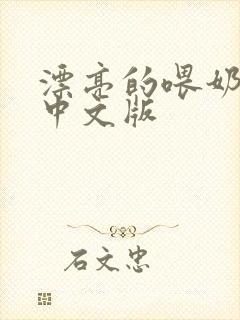 漂亮的喂奶
中文版
石文忠